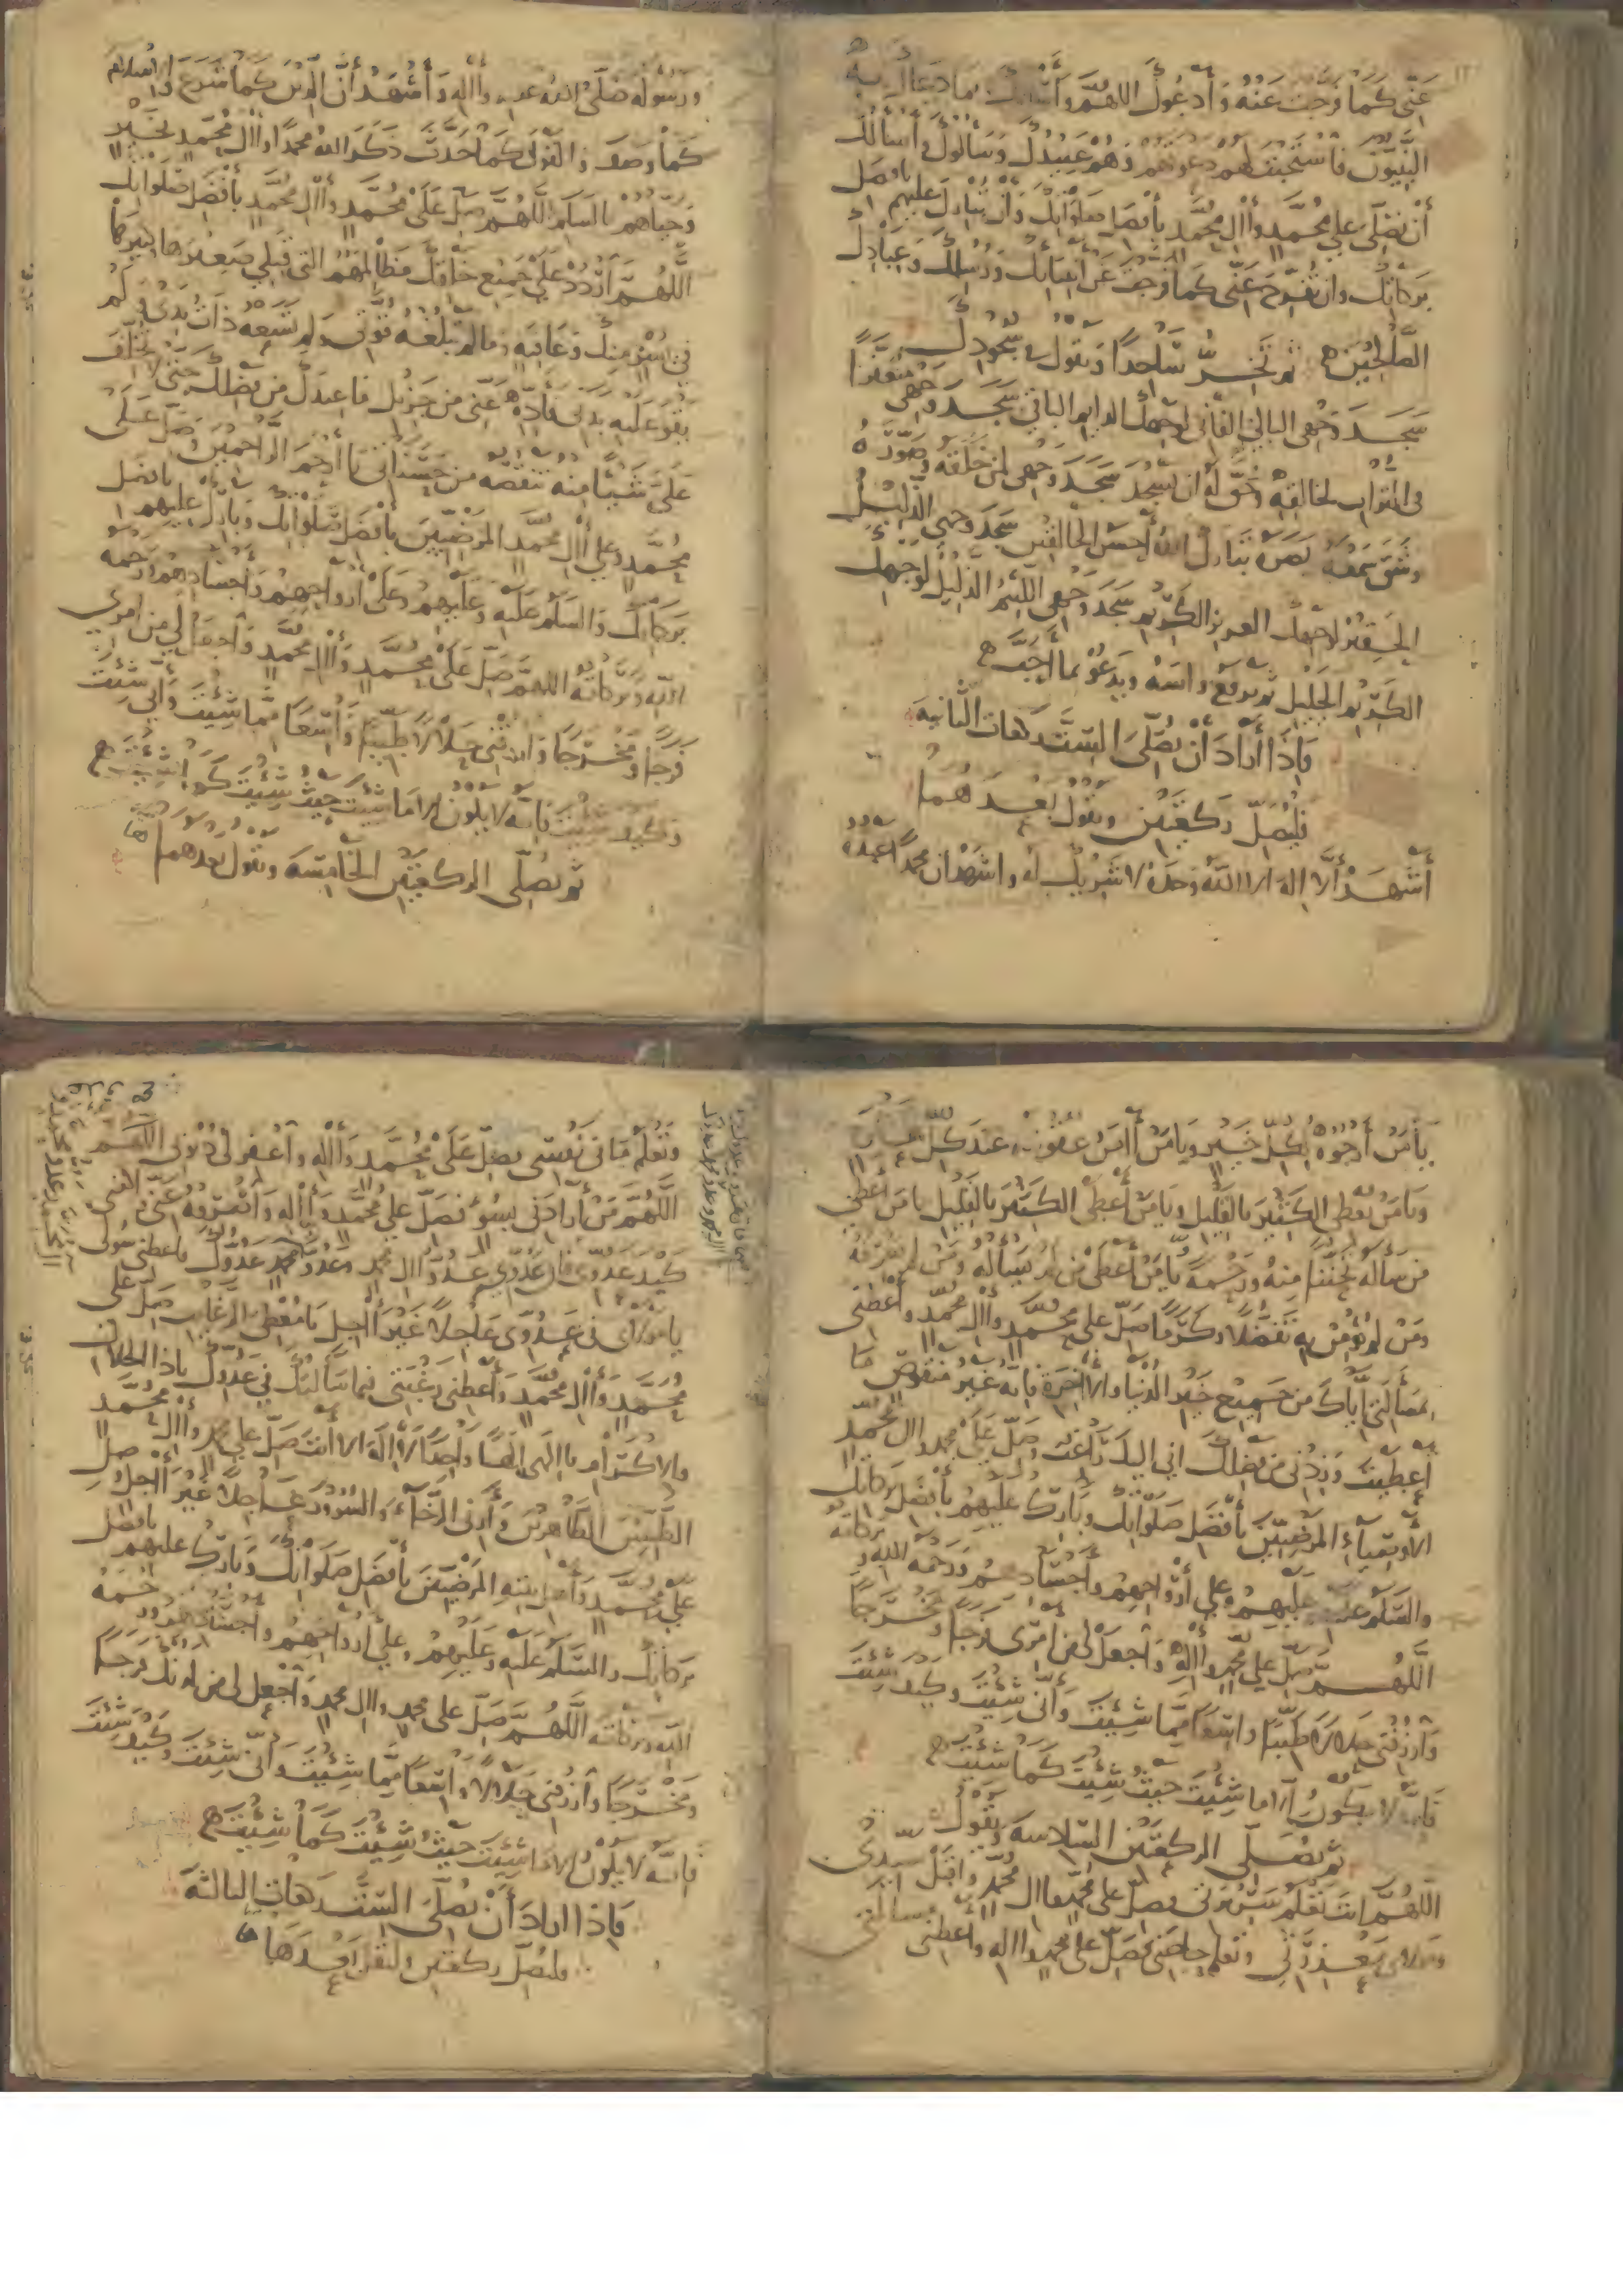 عَنّي كما فرّجت عنه وأدعوك اللهم وأسألك بما دعاك به
النبيّون فاستجبت لهم دعوتهم وهم عبيدك وسألوك أسألك
أن تصلّي على محمد وأال محمد بأفضل صلواتك وأن تبارك عليهم بافضل
بركاتك وان تفرّج عَنّي كما فرجت عن انبيائك ورسلك وعبادك
الصّلحين ثم تخرّ ساجدًا وتقول في سجودك
سجد وجهي البالي الفاني لوجهك الدايم الباقي سجد وجهي متعفرا
في التراب لخالقه وحق له ان يسجد سجد وجهي لمن خلقه وصوّره
وشق سمعه وبصره تبارك الله أحسن الخالقين سجد وجهي الذليل
الحقير لوجهك العزيز الكريم سجد وجهي اللئيم الذليل لوجهك
الكريم الجليل ثم يرفع راسه ويدعو بما أحبّ
فاذا أراد أن يصلّي الستّ ركعات الثانية
فليصلّ ركعتين ويقول بعدهما
أشهد ألا اله الا الله وحده لا شريك له واشهد ان محمدا عبده
ورسوله صلّى الله عليه وأاله وأشهد أنّ الدين كما شرع والاسلام
كما وصف والقول كما حدّث ذكر الله محمدا وأال محمد بخير
وحياهم بالسلم اللهمّ صلّ على محمد وأال محمد بأفضل صلواتك
اللهمّ اردد على جميع خلقك مظالمهم التي قبلي صغيرها وكبيرها
في يسر منك وعافية وما لم تبلغه قوّتي ولم تسعه ذات يدي ولم
يقو عليه بدني فأدّه عنّي من جزيل ما عندك من فضلك حتى لا تخلف
علىّ شيئا منه تنقصه من حسناتي يا أرحم الراحمين وصلّ على
محمّد وعلى أال محمّد المرضيّين بأفضل صلواتك وبارك عليهم بافضل
بركاتك والسلم عليه وعليهم وعلى أرواحهم وأجسادهم ورحمه
الله وبركاته اللهم صلّ على محمّد وأال محمّد واجعل لي من امري
فرجا ومخرجا وارزقني حلالا طيّبًا واسعا ممّا شئت وأنّى شئت
وكيف شئت فانه لا يكون الا ما شئت حيث شئت كما شئت
ثم يصلّي الركعتين الخامسة ويقول بعدهما
يا من أرجوه لكلّ خير ويا من أامن عقوبته عند كل
ويا من يعطي الكثير بالقليل ويا من أعطى الكثير بالقليل يا من أعطى
من سأله تحننا منه ورحمة يا من أعطى من لم يسأله ومن لم يعرفه
ومن لم يؤمن به تفضّلا وكرما صلّ على محمد وأال محمد وأعطني
بمسألتي إيّاك من جميع خير الدنيا والأخرة فانّه غير منقوص ما
أعطيت وزدني من فضلك اني إليك راغب وصلّ على محمد وال محمد
الأوصياء المرضيّين بأفضل صلواتك وبارك عليهم بأفضل بركاتك
والسّلم عليه وعليهم وعلى أرواحهم وأجسادهم ورحمه الله وبركاته
اللهم صلّ على محمد وأاله واجعل لي من امري فرجا ومخرجا
وارزقني حلالا طيّبا واسعا ممّا شئت وأنّى شئت وكيف شئت
فانّه لا يكون الا ما شئت حيث شئت كما شئت
ثم يصلّي الركعتين السادسة ويقول
اللهم انت تعلم سريرتي فصلّ على محمد واال محمد واقبل سيّدي
ومولاي معذرتي وتعلم حاجتي فصلّ على محمد وااله واعطني مسألتي
وتعلم ما في نفسي فصلّ على محمّد وأاله واغفر لي ذنوبي اللهم
اللهمّ من أرادني بسوء فصلّ على محمّد وأاله واصرفه عنّي واكفني
كيد عدوّي فان عدوّي عدوّ اال محمد وعدوّ محمد عدوّك فاعطني سولي
يا مولاي في عدوّي عاجلا غير أاجل يا معطي الرغايب صلّ على
محمّد وأال محمّد وأعطني رغبتي فيما سألتك في عدوّك ياذا الجلال
والاكرام يا الهي الهًا واحدًا لا اله الا أنت صلّ على محمد وأال محمّد
الطيّبين الطاهرين وأرني الرّخاء والسرور عاجلا غير أاجل وصل
على محمّد وأهل بيته المرضيّين بأفضل صلواتك وبارك عليهم بافضل
بركاتك والسّلم عليه وعليهم وعلى أرواحهم وأجسادهم ورحمه
الله وبركاته اللهمّ صلّ على محمد واال محمد واجعل لي من لدنك فرجا
ومخرجا وارزقني حلالا واسعا ممّا شئت وأنّى شئت وكيف شئت
فانّه لا يكون الا ما شئت حيث شئت كما شئت
فاذا اراد أن يصلّي الستّ ركعات الثالثة
فليصلّ ركعتين وليقل بعدها